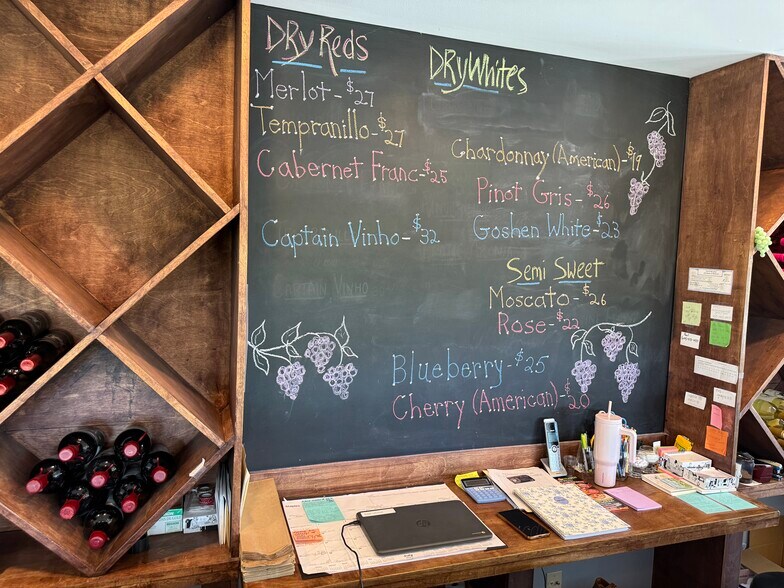 DRy Reds
Merlot - $27
Tempranillo - $27
Cabernet Franc - $25
Captain Vinho - $32
CAPTAIN VINHO
DRy Whites
Chardonnay (American) - $19
Pinot Gris - $26
Goshen White - $23
Semi Sweet
Moscato - $26
Rose - $22
Blueberry - $25
Cherry (American) - $20